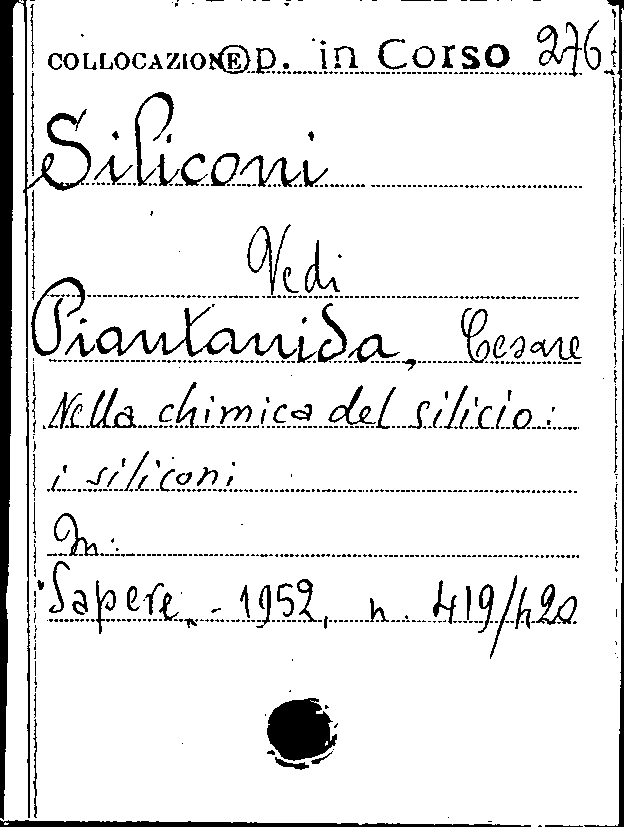 COLLOCAZIONE Op. in Corso 276
Siliconi
Vedi
Piantanida, Cesare
Nella chimica del silicio:
i siliconi
In:
"Sapere" - 1952, n. 419/420